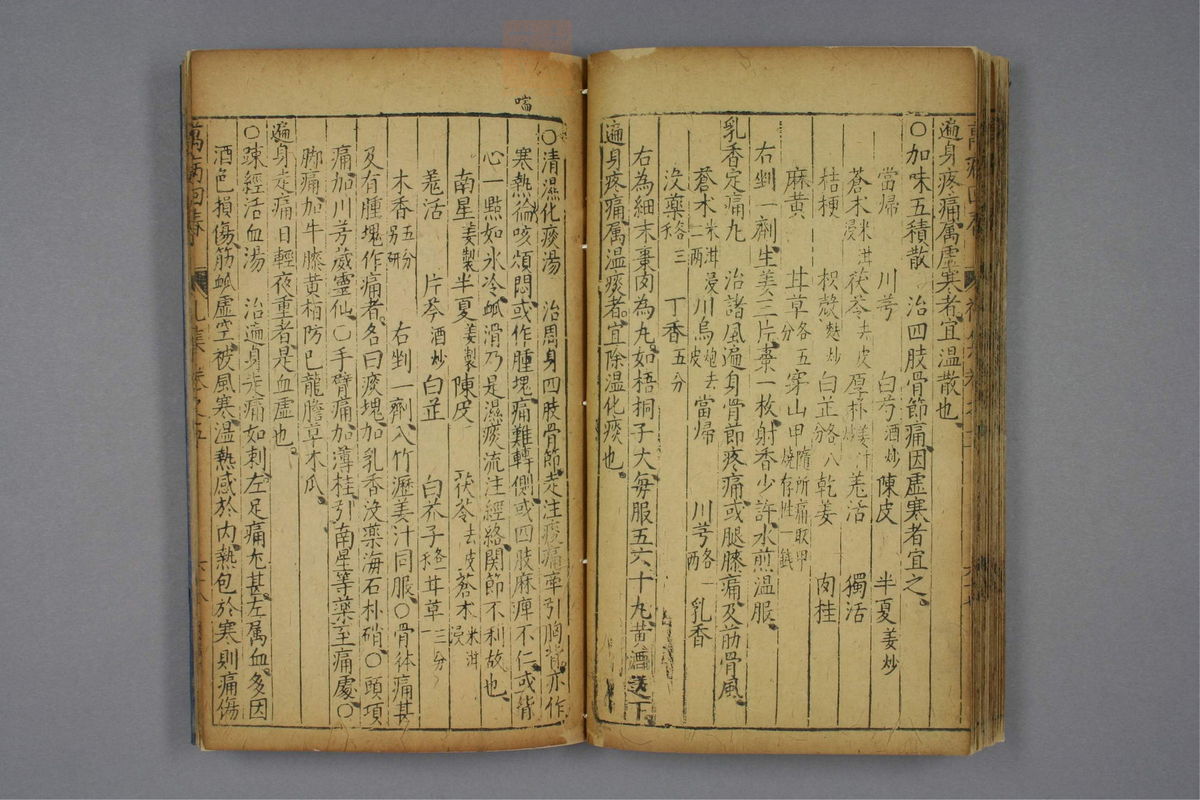 遍身疼痛属虚寒者宜温散也
〇加味五積散　治四肢骨節痛因虚寒者宜之
當帰　川芎　白芍酒炒　陳皮　半夏姜炒
蒼朮米泔浸　茯苓去皮　厚朴姜汁炒　羌活　獨活
桔梗　枳殼麩炒　白芷各八分　乾姜　肉桂
麻黄　甘草各五分　穿山甲隋所痛取甲燒存性一錢
右剉一劑生姜三片棗一枚射香少許水煎温服
乳香定痛丸　治諸風遍身骨節疼痛或腿膝痛及筋骨風
蒼朮米泔浸二两　川烏炮去皮　當帰　川芎各一两　乳香
没藥各三　丁香五分
右為細末棗肉為丸如梧桐子大每服五六十丸黄酒送下
遍身疼痛属温痰者宜除温化痰也
喘
〇清濕化痰湯　治周身四肢骨節走注痠痛牽引胸背亦作
寒熱喘咳煩悶或作腫塊痛難轉側或四肢麻痺不仁或背
心一點如氷冷脉滑乃是濕痰流注經絡關節不利故也
南星姜製　半夏姜製　陳皮　茯苓去皮　蒼朮米泔浸
羌活　片芩酒炒　白芷　白芥子各　甘草三分
木香五分另研　右剉一劑入竹瀝姜汁同服〇骨体痛甚
及有腫塊作痛者名曰痰塊加乳香没藥海石朴硝〇頭項
痛加川芎葳靈仙〇手臂痛加薄桂引南星等藥至痛處〇
脚痛加牛膝黄栢防已龍膽草木瓜
遍身走痛日輕夜重者是血虚也
〇踈經活血湯　治遍身走痛如刺左足痛尤甚左属血多因
酒色損傷筋脉虚空被風寒温熱感於内熱包於寒則痛傷
萬病回春